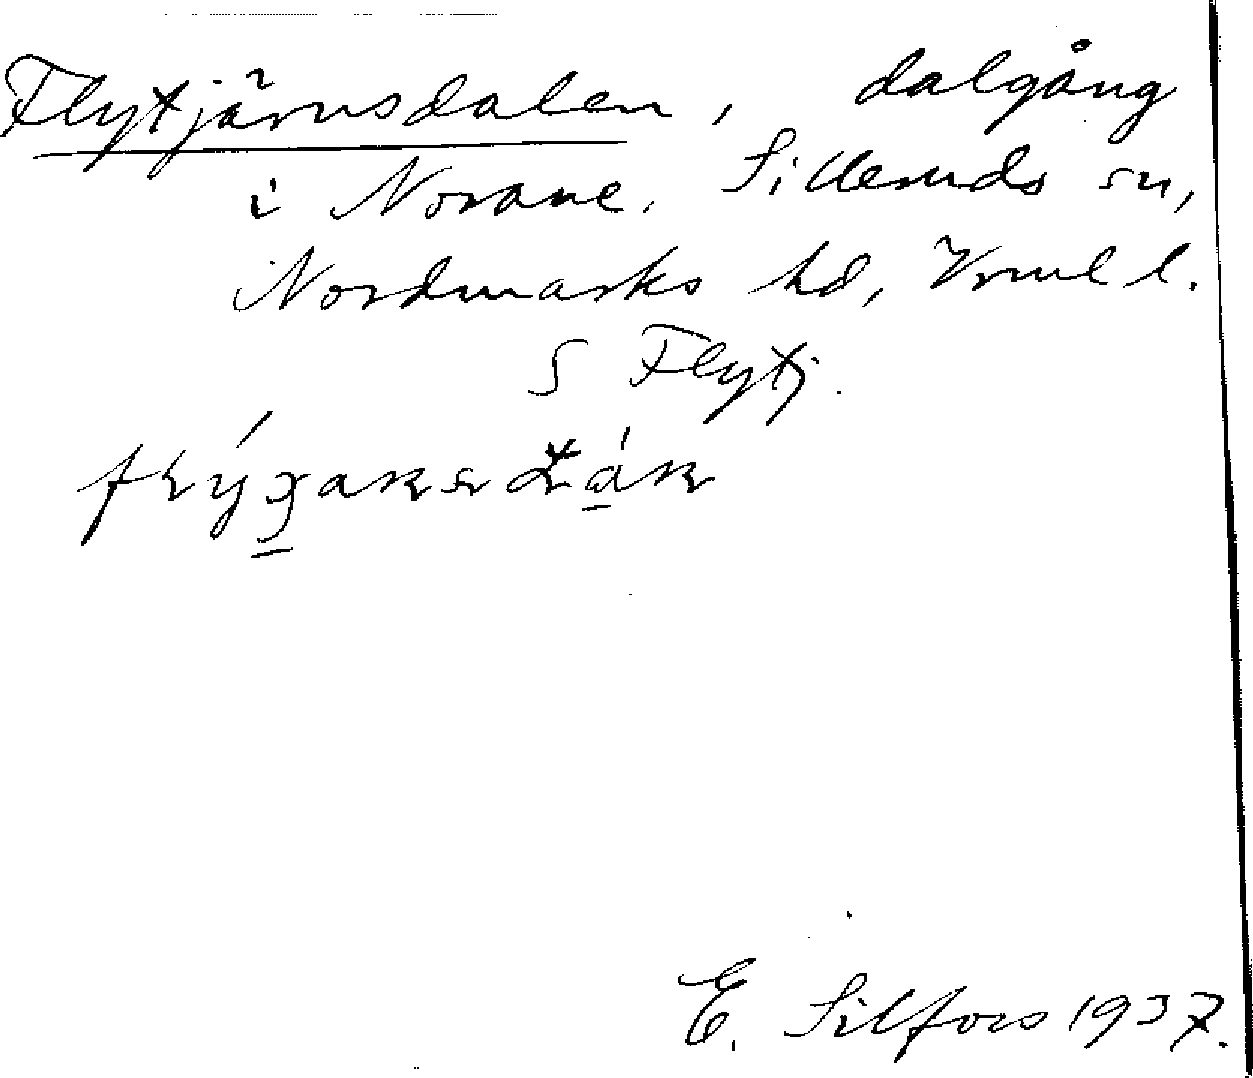 Flytjärnsdalen, dalgång
i Norane. Silleruds sn,
Nordmarks hd, Vrml l.
S Flytj.
E. Silfors 1937.